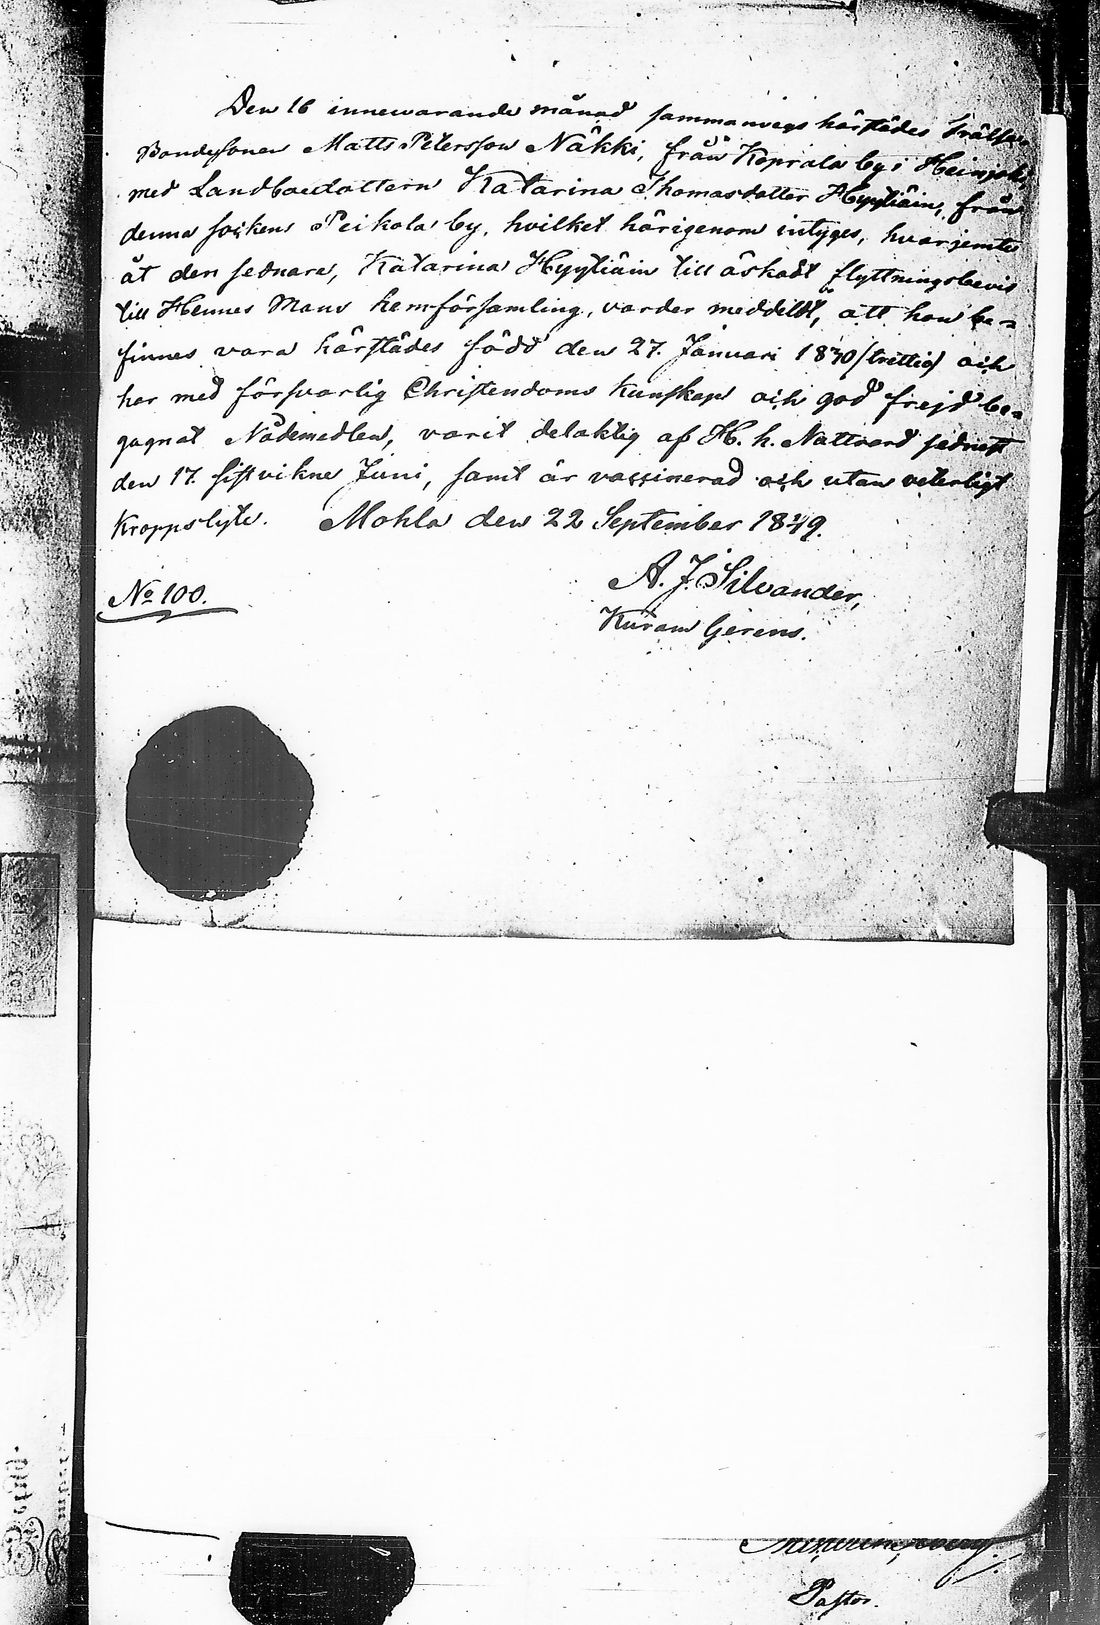 Den 16 innewarande månad sammanvegs härstädes Frälse
Bondesonen Matts Petersson Näkki, från Koprala by i Heinjoki,
med Landboedottern Katarina Thomasdotter Hyytiäin, från
denna sockens Peikola by, hvilket härigenom intyges, hvarjemte
åt den sednare, Katarina Hyytiäin till äskadt flyttningsbevis
till Hennes Mans hemförsamling, varder meddeldt, att hon be=
finnes vara härstädes född den 27. Januari 1830 (trettio) och
har med försvarlig Christendoms Kunskap och god frejd be=
gagnat Nådemedlen, varit delaktig af H. h. Nattvard sednast
den 17. sistvikne Juni, samt är vaccinerad och utan veterligt
Kroppslyte. Mohla den 22 September 1849.
A. J. Silvander,
Kuram Gerens.
No 100.
Pastor.